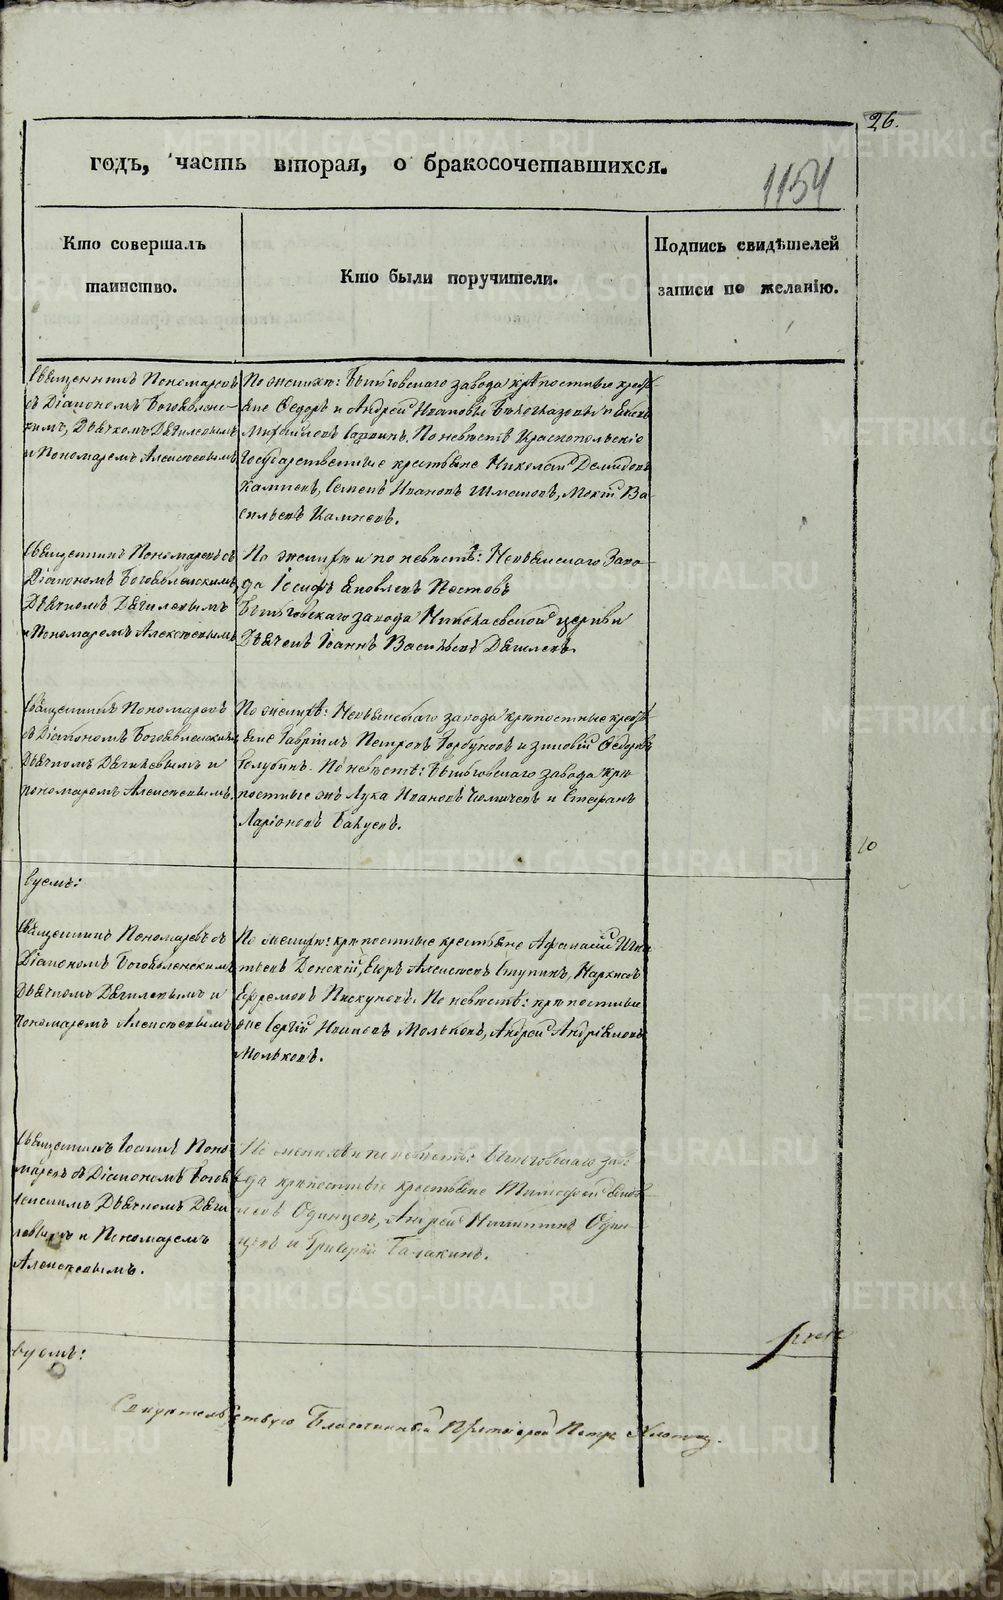 26.
годъ, часть вторая, о бракосочетавшихся.
1154
Кто совершалъ таинство.
Кто были поручители.
Подпись свидѣтелей записи по желанію.
Священникъ Пономаревъ
съ Діакономъ Богоявленс-
кимъ, Дьячкомъ Дягилевымъ
и Пономаремъ Алексѣевымъ
По женихѣ: завода крѣпостные кресть-
яне Ѳедоръ и Андрей Ивановы и
Михайловъ По невѣстѣ
Государственные крестьяне Николай Демидовъ
Семенъ Ивановъ Мокій Ва-
сильевъ
Священникъ Пономаревъ съ
Діакономъ Богоявленскимъ,
Дьячкомъ Дягилевымъ
и Пономаремъ Алексѣевымъ
По женихѣ и по невѣстѣ: Невьянскаго Заво-
да Іосифъ Яковлевъ
завода Николаевской церкви
Дьячекъ Іоаннъ Васильевъ Дягилевъ.
Священникъ Пономаревъ
съ Діакономъ Богоявленскимъ
Дьячкомъ Дягилевымъ и
пономаремъ Алексѣевымъ.
По женихѣ: Невьянскаго завода крѣпостные кресть-
яне Гаврiилъ Петровъ Горбуновъ и Зиновій Ѳедоровъ
Голубинъ. По невѣстѣ: завода крѣ-
постные же Лука Ивановъ и Стефанъ
Ларіоновъ
вуемъ:
Священникъ Пономаревъ съ
Діакономъ Богоявленскимъ
Дьячкомъ Дягилевымъ и
Пономаремъ Алексѣевымъ
По женихѣ: крѣпостные крестьяне Афанасій Игна-
тьевъ Донскій, Егоръ Алексѣевъ Ступинъ, Наркисъ
Ефремовъ Пискуновъ. По невѣстѣ: крѣпостные
же Сергій Ивановъ Мольковъ, Андрей Андріяновъ
Мольковъ.
Священникъ Іоаннъ Поно-
маревъ съ Діакономъ Богояв-
ленскимъ Дьячкомъ Дяги-
левымъ и Пономаремъ
Алексѣевымъ.
По женихѣ и по невѣстѣ: заво-
да крѣпостные крестьяне Тимофей
Одинцовъ, Андрей Никитинъ Один-
цовъ и Григорій Галакинъ.
вуемъ:
Свидѣтельствую Благочинный Протоіерей Петръ
METRIKI.GASO-URAL.RU